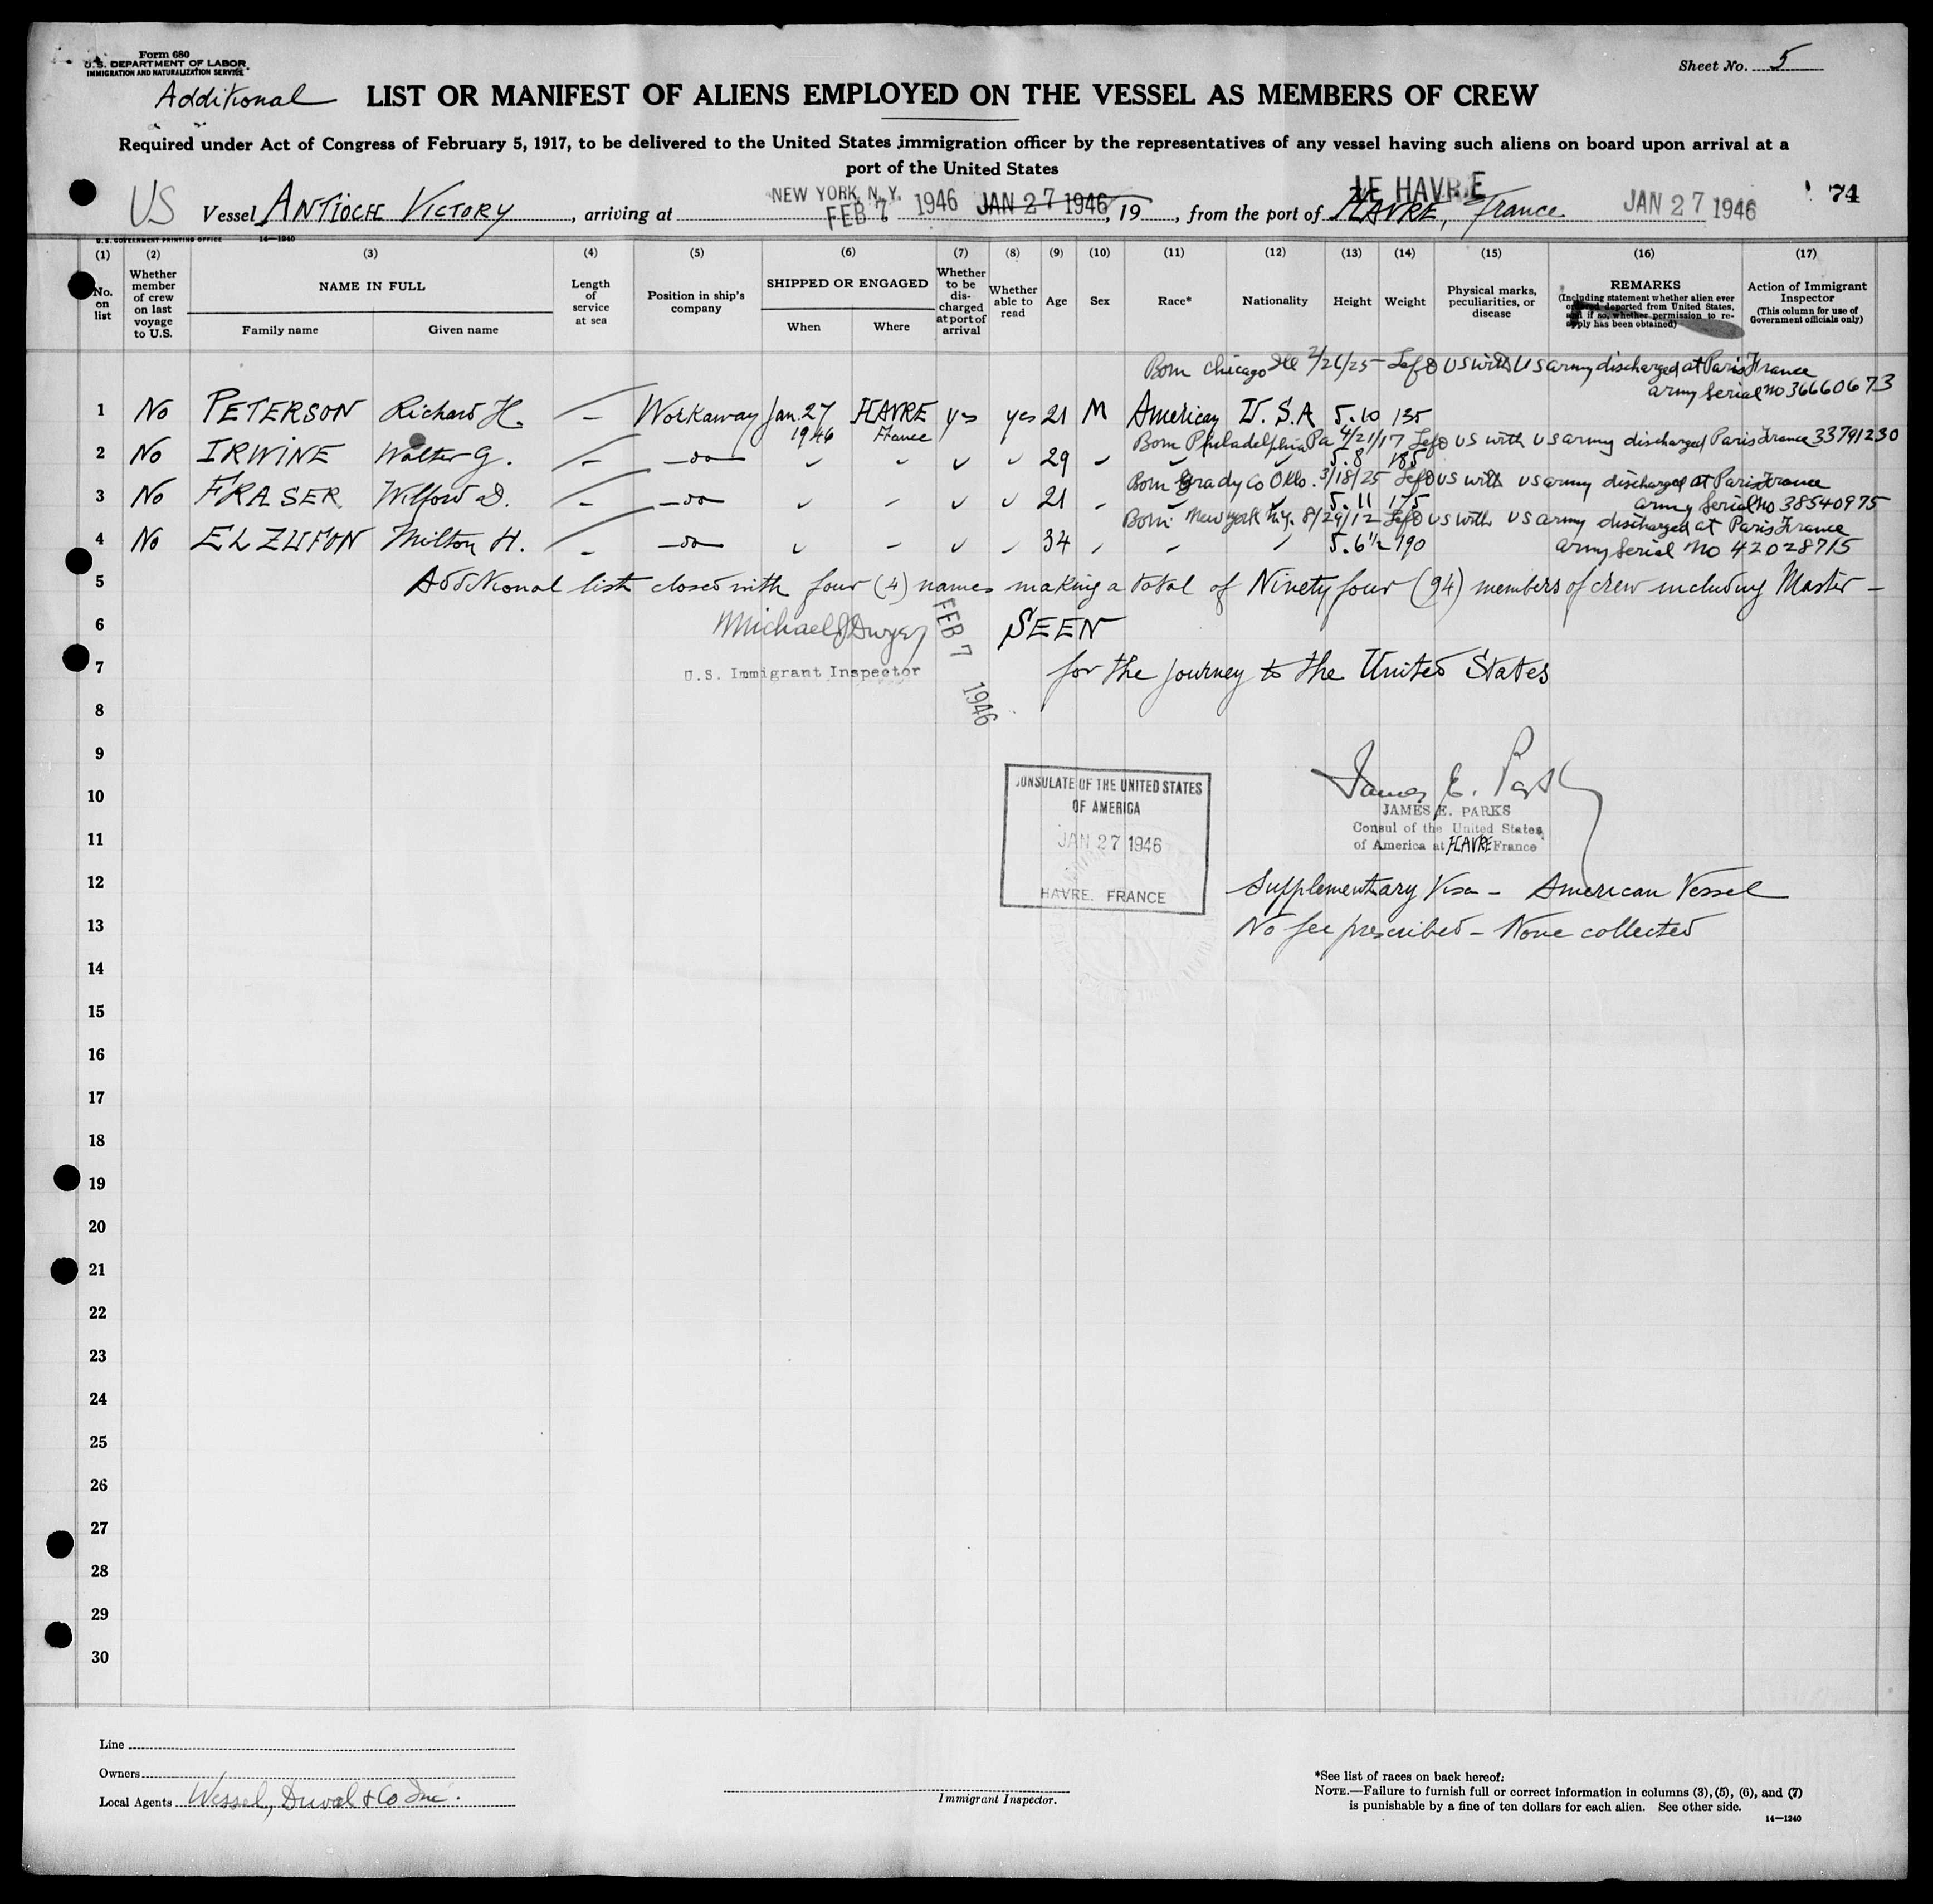 Form 680
U.S. DEPARTMENT OF LABOR
IMMIGRATION AND NATURALIZATION SERVICE
Sheet No. 5
Additional LIST OR MANIFEST OF ALIENS EMPLOYED ON THE VESSEL AS MEMBERS OF CREW
Required under Act of Congress of February 5, 1917, to be delivered to the United States immigration officer by the representatives of any vessel having such aliens on board upon arrival at a
port of the United States
US Vessel ANTIOCH VICTORY, arriving at NEW YORK, N.Y. FEB 7 1946 JAN 27 1946, 19, from the port of LE HAVRE HAVRE, France JAN 27 1946 74
U.S. GOVERNMENT PRINTING OFFICE 14-1240
(1) (2) (3) (4) (5) (6) (7) (8) (9) (10) (11) (12) (13) (14) (15) (16) (17)
No. on list
Whether member of crew on last voyage to U.S.
NAME IN FULL
Family name Given name
Length of service at sea
Position in ship's company
SHIPPED OR ENGAGED
When Where
Whether to be discharged at port of arrival
Whether able to read
Age
Sex
Race*
Nationality
Height
Weight
Physical marks, peculiarities, or disease
REMARKS
(Including statement whether alien ever ordered deported from United States, and if so, whether permission to reapply has been obtained)
Action of Immigrant Inspector
(This column for use of Government officials only)
Born Chicago Ill 2/26/25 - Left US with US army discharged at Paris France
army Serial no 36660673
1 No PETERSON Richard H. - Workaway Jan. 27 1946 HAVRE France yes yes 21 M American U.S.A 5.10 135
Born Philadelphia Pa 4/21/17 Left US with US army discharged Paris France 33791230
2 No IRWINE Walter G. - -do- ✓ - ✓ ✓ 29 - - ✓ 5.8 185
Born Grady Co Okla. 3/18/25 Left US with US army discharged at Paris France
army Serial no 38540975
3 No FRASER Wilford D. - -do- ✓ - ✓ ✓ 21 - - ✓ 5.11 175
Born New York N.Y. 8/29/12 Left US with US army discharged at Paris France
army Serial no 42028715
4 No ELZUFON Milton H. - -do- ✓ - ✓ - 34 - - - 5.6½ 190
5 Additional list closed with four (4) names making a total of Ninety four (94) members of crew including Master -
6 Michael J Dwyer FEB 7 1946 SEEN
7 U.S. Immigrant Inspector for the journey to the United States
8
9 James E. Parks
CONSULATE OF THE UNITED STATES
OF AMERICA
JAN 27 1946
HAVRE, FRANCE
10 JAMES E. PARKS
Consul of the United States
11 of America at HAVRE France
12 Supplementary Visa - American Vessel
13 No fee prescribed - None collected
14
15
16
17
18
19
20
21
22
23
24
25
26
27
28
29
30
Line
Owners
Local Agents Wessel, Duval & Co Inc.
Immigrant Inspector.
*See list of races on back hereof.
NOTE.—Failure to furnish full or correct information in columns (3), (5), (6), and (7)
is punishable by a fine of ten dollars for each alien. See other side.
14—1240